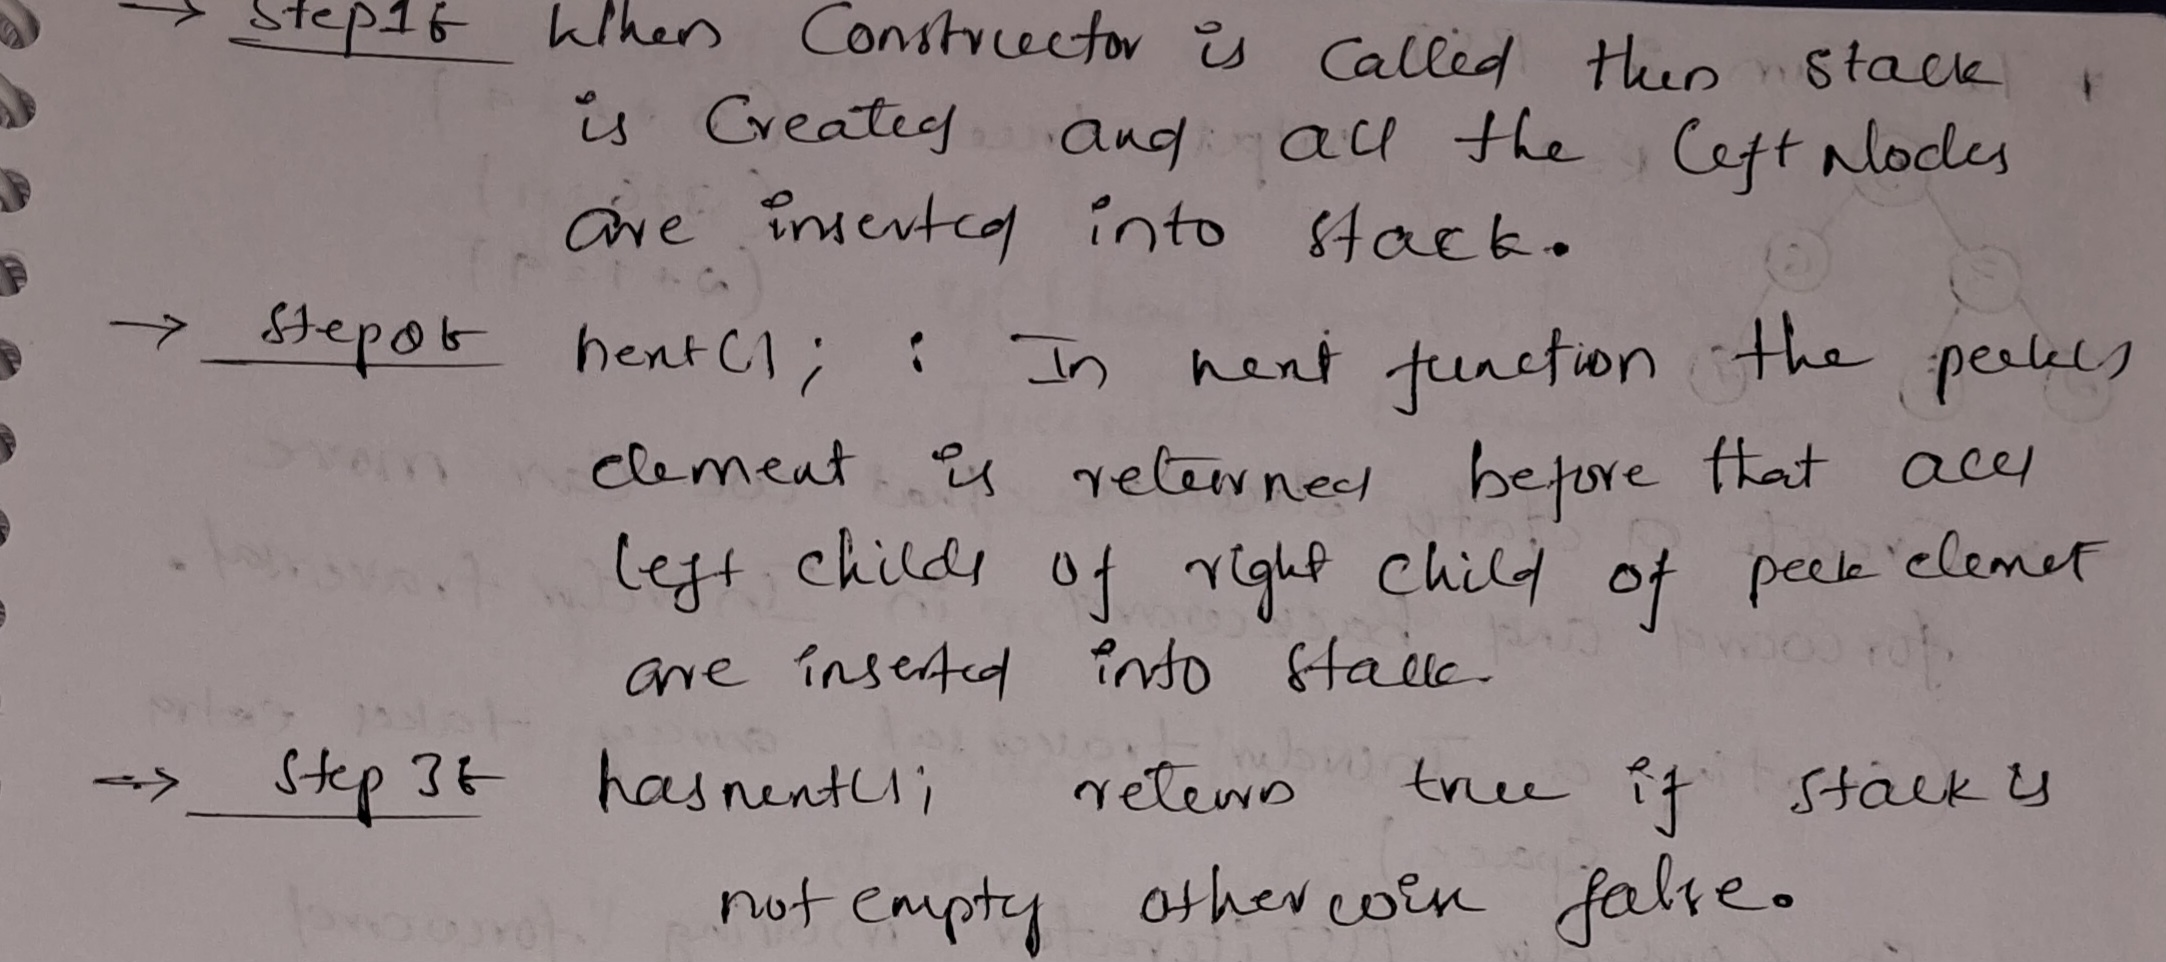 → Step 1:- When Constructor is called then stack
is Created and all the left Nodes
are inserted into stack.
→ Step 2:- next(); : In next function the peek
element is returned before that all
left childs of right child of peek elemet
are inserted into stack.
→ Step 3:- hasnext(); return true if stack is
not empty otherwise false.